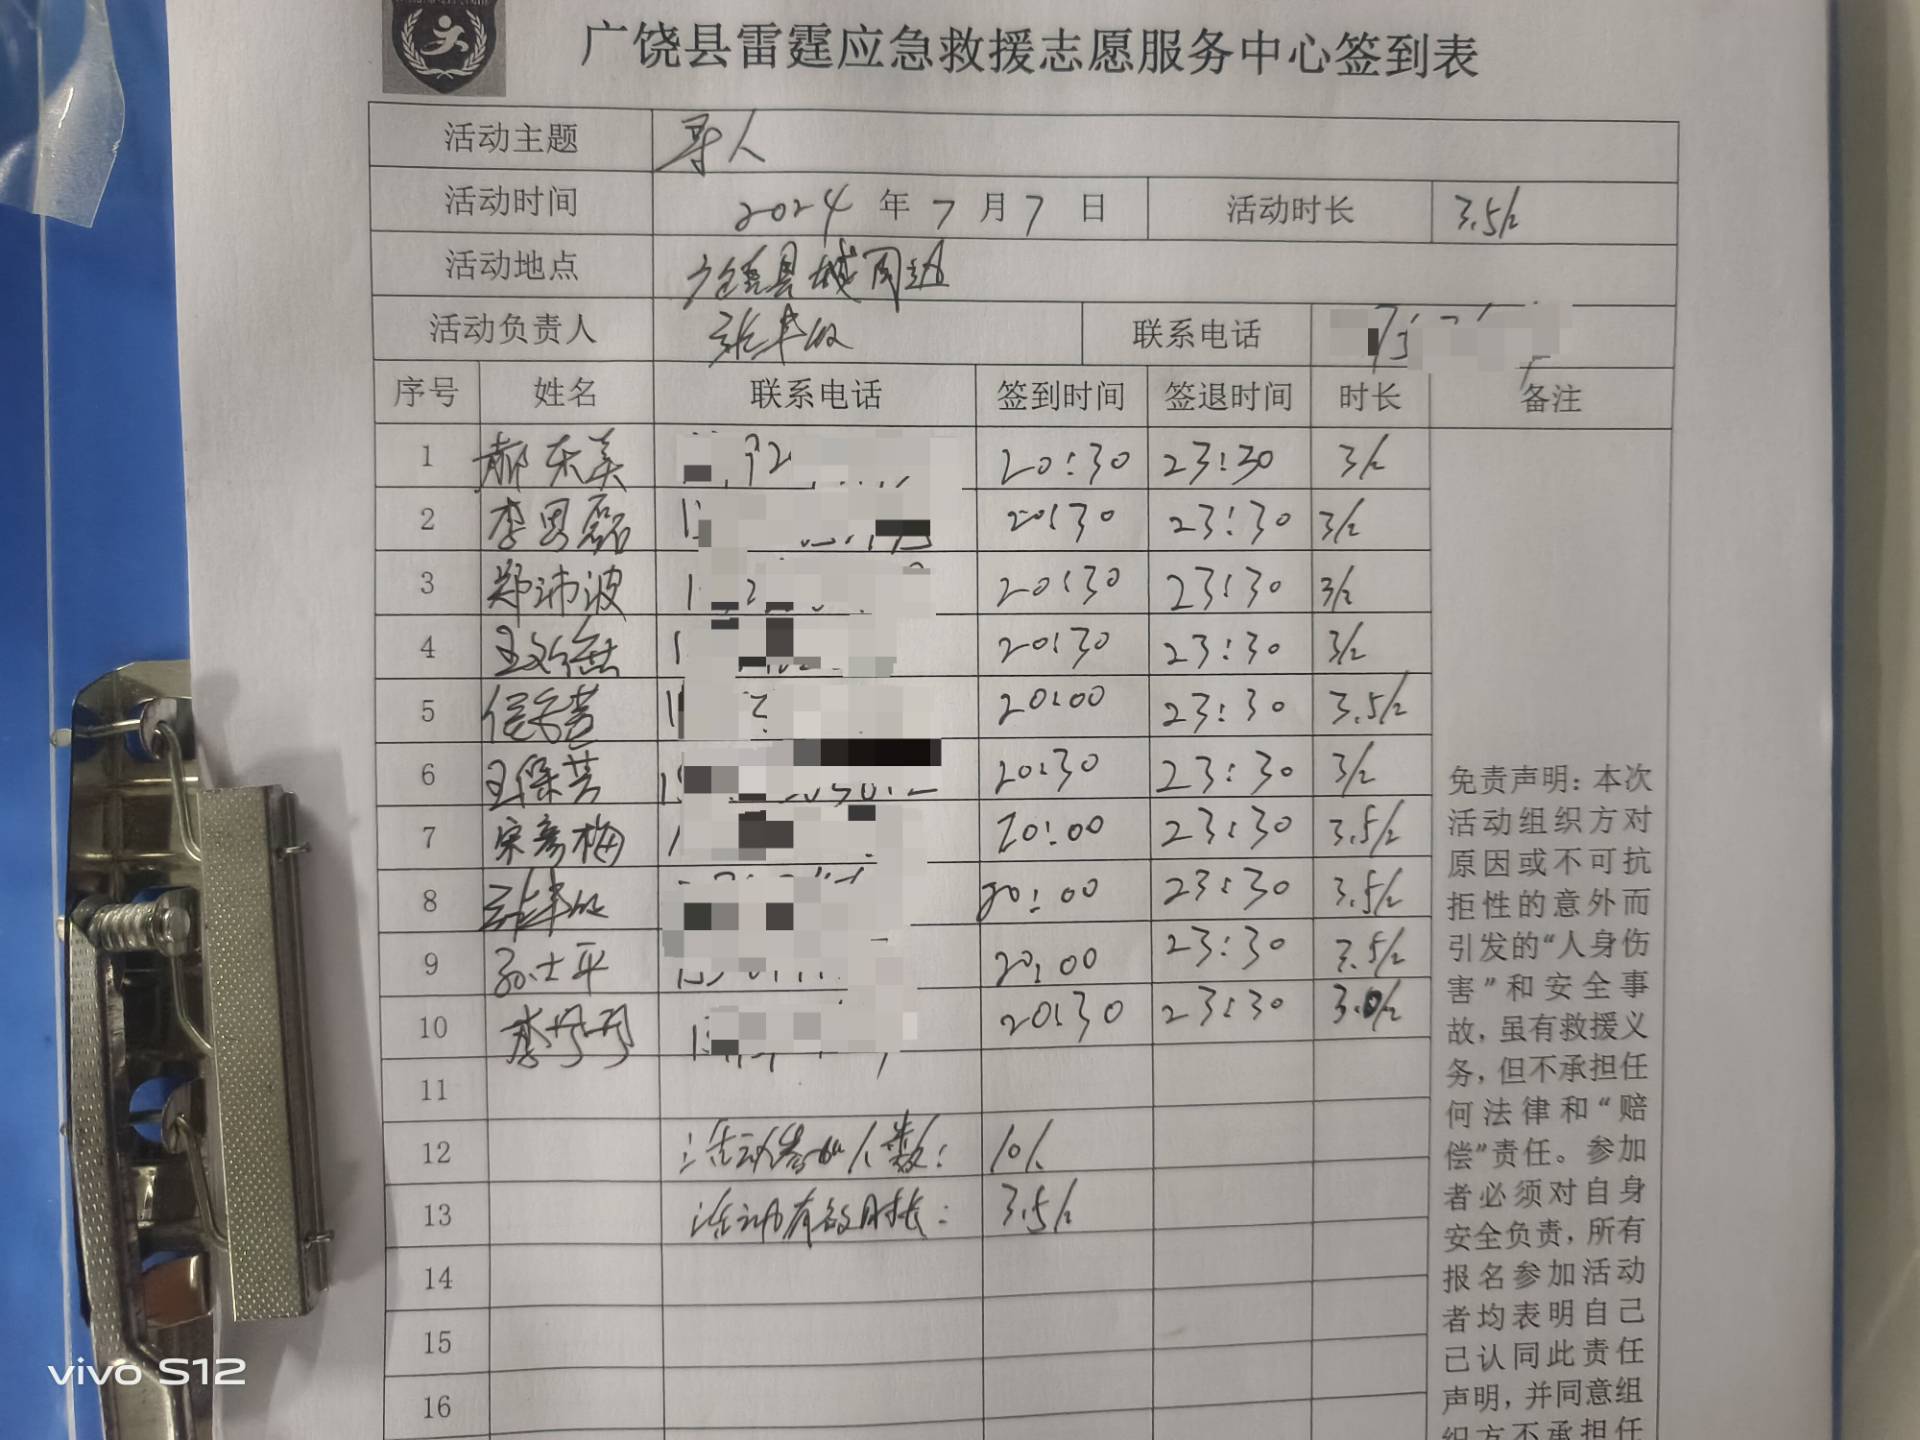 广饶县雷霆应急救援志愿服务中心签到表
活动主题 寻人
活动时间 2024 年 7 月 7 日 活动时长 3.5h
活动地点 广饶县城周边
活动负责人 联系电话
序号 姓名 联系电话 签到时间 签退时间 时长 备注
1 郝东美 20:30 23:30 3h
2 李男磊 20:30 23:30 3h
3 郑沛波 20:30 23:30 3h
4 20:30 23:30 3h
5 20:00 23:30 3.5h
6 王保芳 20:30 23:30 3h
7 宋彦梅 20:00 23:30 3.5h
8 20:00 23:30 3.5h
9 孙士平 20:00 23:30 3.5h
10 李丹丹 20:30 23:30 3.0h
11
12 活动参加人数: 10人
13 活动有效时长: 3.5h
14
15
16
免责声明：本次
活动组织方对
原因或不可抗
拒性的意外而
引发的“人身伤
害”和安全事
故，虽有救援义
务，但不承担任
何法律和“赔
偿”责任。参加
者必须对自身
安全负责，所有
报名参加活动
者均表明自己
已认同此责任
声明，并同意组
织方不承担任
vivo S12